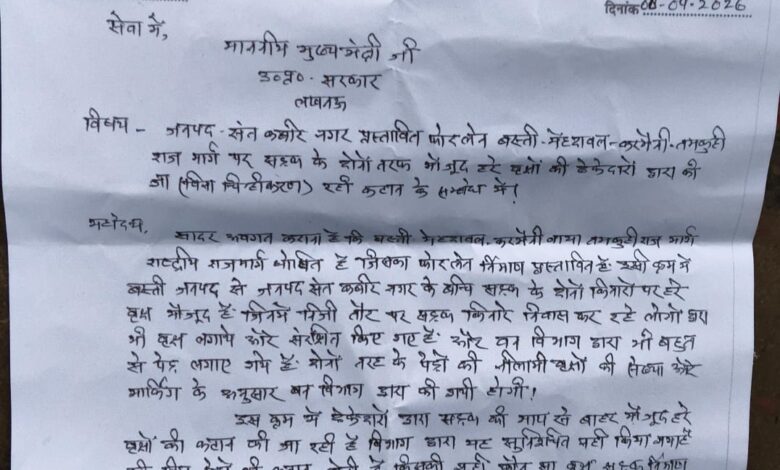 दिनांक 08-04-2026
सेवा में,
माननीय मुख्यमंत्री जी
उ०प्र०- सरकार
लखनऊ
विषय - जनपद - संत कबीर नगर प्रस्तावित फोरलेन बस्ती-मेंहदावल-करमैनी-तमकुही
राज मार्ग पर सड़क के दोनों तरफ मौजूद हरे वृक्षों की ठेकेदारों द्वारा की
जा (बिना चिन्हीकरण) रही कटान के सम्बंध में!
महोदय, सादर अवगत कराना है कि बस्ती मेंहदावल करमैनी तमकुहीराज मार्ग
राष्ट्रीय राजमार्ग घोषित है जिसका फोरलेन निर्माण प्रस्तावित है. इसी क्रम में
बस्ती जनपद से जनपद संत कबीर नगर के बीच सड़क के दोनों किनारों पर हरे
वृक्ष मौजूद हैं जिनमें निजी तौर पर सड़क किनारे निवास कर रहे लोगों द्वारा
भी वृक्ष लगाये और संरक्षित किए गए हैं और वन विभाग द्वारा भी बहुत
से पेड़ लगाए गये हैं. दोनों तरह के पेड़ों की नीलामी वृक्षों की संख्या और
मार्किंग के अनुसार वन विभाग द्वारा की गयी होगी!
इस क्रम में ठेकेदारों द्वारा सड़क की माप से बाहर मौजूद हरे
वृक्षों की कटान की जा रही है विभाग द्वारा यह सुनिश्चित नही किया